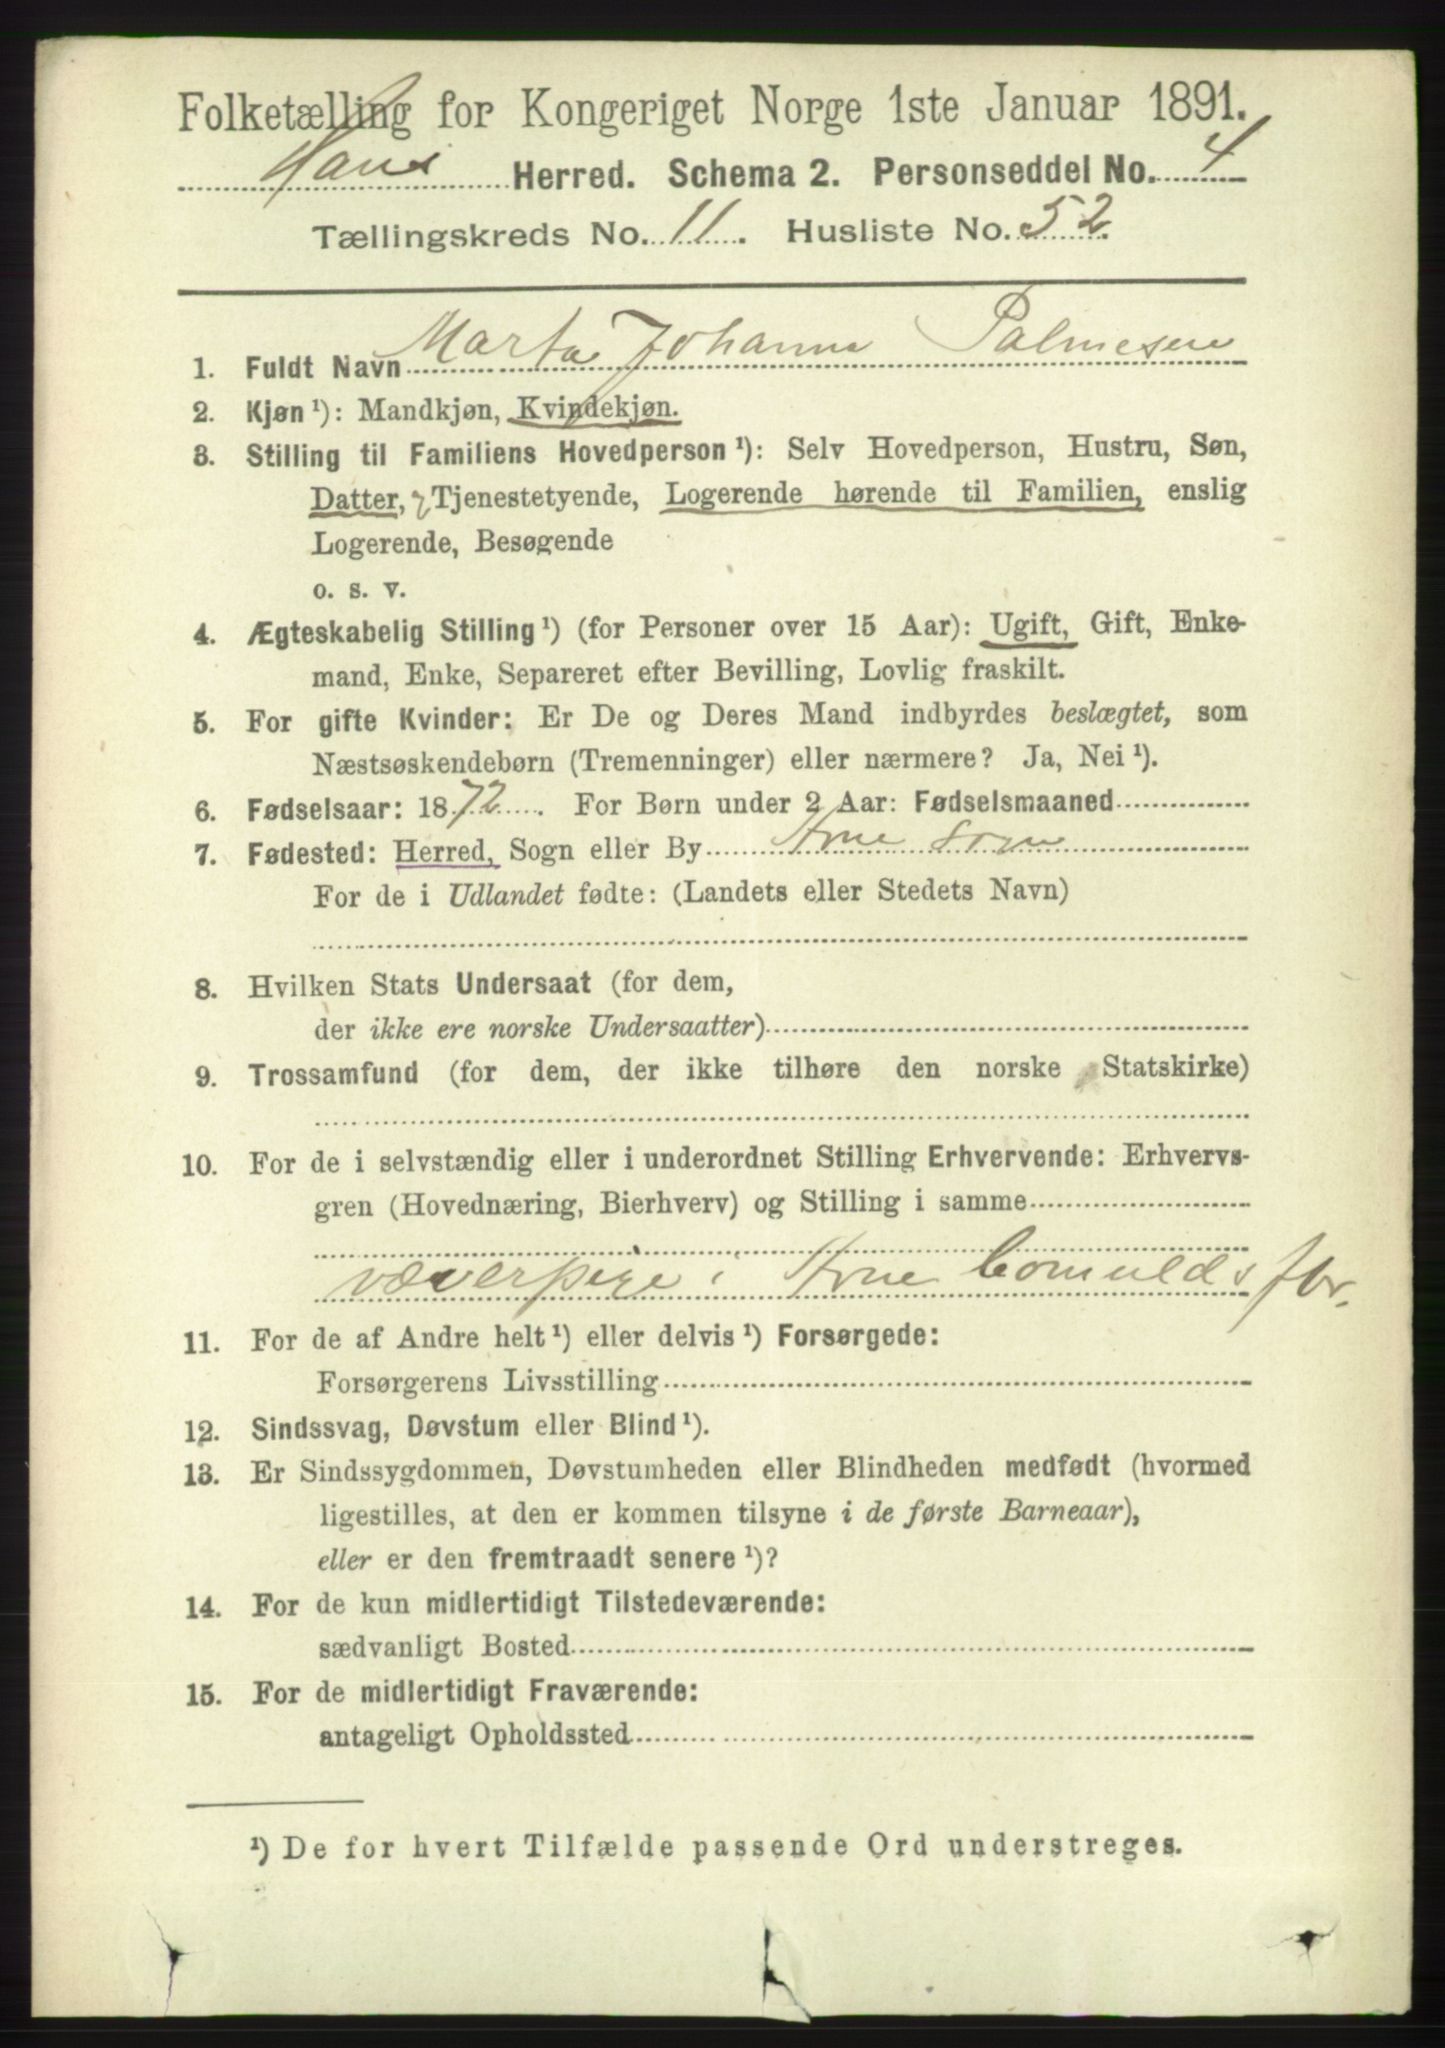 Folketælling for Kongeriget Norge 1ste Januar 1891.
Haus Herred. Schema 2. Personseddel No. 4
Tællingskreds No. 11. Husliste No. 52.
1. Fuldt Navn Marta Johanne Palmesen
2. Kjøn ¹): Mandkjøn, Kvindekjøn.
3. Stilling til Familiens Hovedperson ¹): Selv Hovedperson, Hustru, Søn,
Datter, Tjenestetyende, Logerende hørende til Familien, enslig
Logerende, Besøgende
o. s. v.
4. Ægteskabelig Stilling ¹) (for Personer over 15 Aar): Ugift, Gift, Enke-
mand, Enke, Separeret efter Bevilling, Lovlig fraskilt.
5. For gifte Kvinder: Er De og Deres Mand indbyrdes beslægtet, som
Næstsøskendebørn (Tremenninger) eller nærmere? Ja, Nei ¹).
6. Fødselsaar: 1872. For Børn under 2 Aar: Fødselsmaaned
7. Fødested: Herred, Sogn eller By Arne sogn
For de i Udlandet fødte: (Landets eller Stedets Navn)
8. Hvilken Stats Undersaat (for dem,
der ikke ere norske Undersaatter)
9. Trossamfund (for dem, der ikke tilhøre den norske Statskirke)
10. For de i selvstændig eller i underordnet Stilling Erhvervende: Erhvervs-
gren (Hovednæring, Bierhverv) og Stilling i samme
væverpige i Arne bomulds fbr.
11. For de af Andre helt ¹) eller delvis ¹) Forsørgede:
Forsørgerens Livsstilling
12. Sindssvag, Døvstum eller Blind ¹).
13. Er Sindssygdommen, Døvstumheden eller Blindheden medfødt (hvormed
ligestilles, at den er kommen tilsyne i de første Barneaar),
eller er den fremtraadt senere ¹)?
14. For de kun midlertidigt Tilstedeværende:
sædvanligt Bosted
15. For de midlertidigt Fraværende:
antageligt Opholdssted
¹) De for hvert Tilfælde passende Ord understreges.